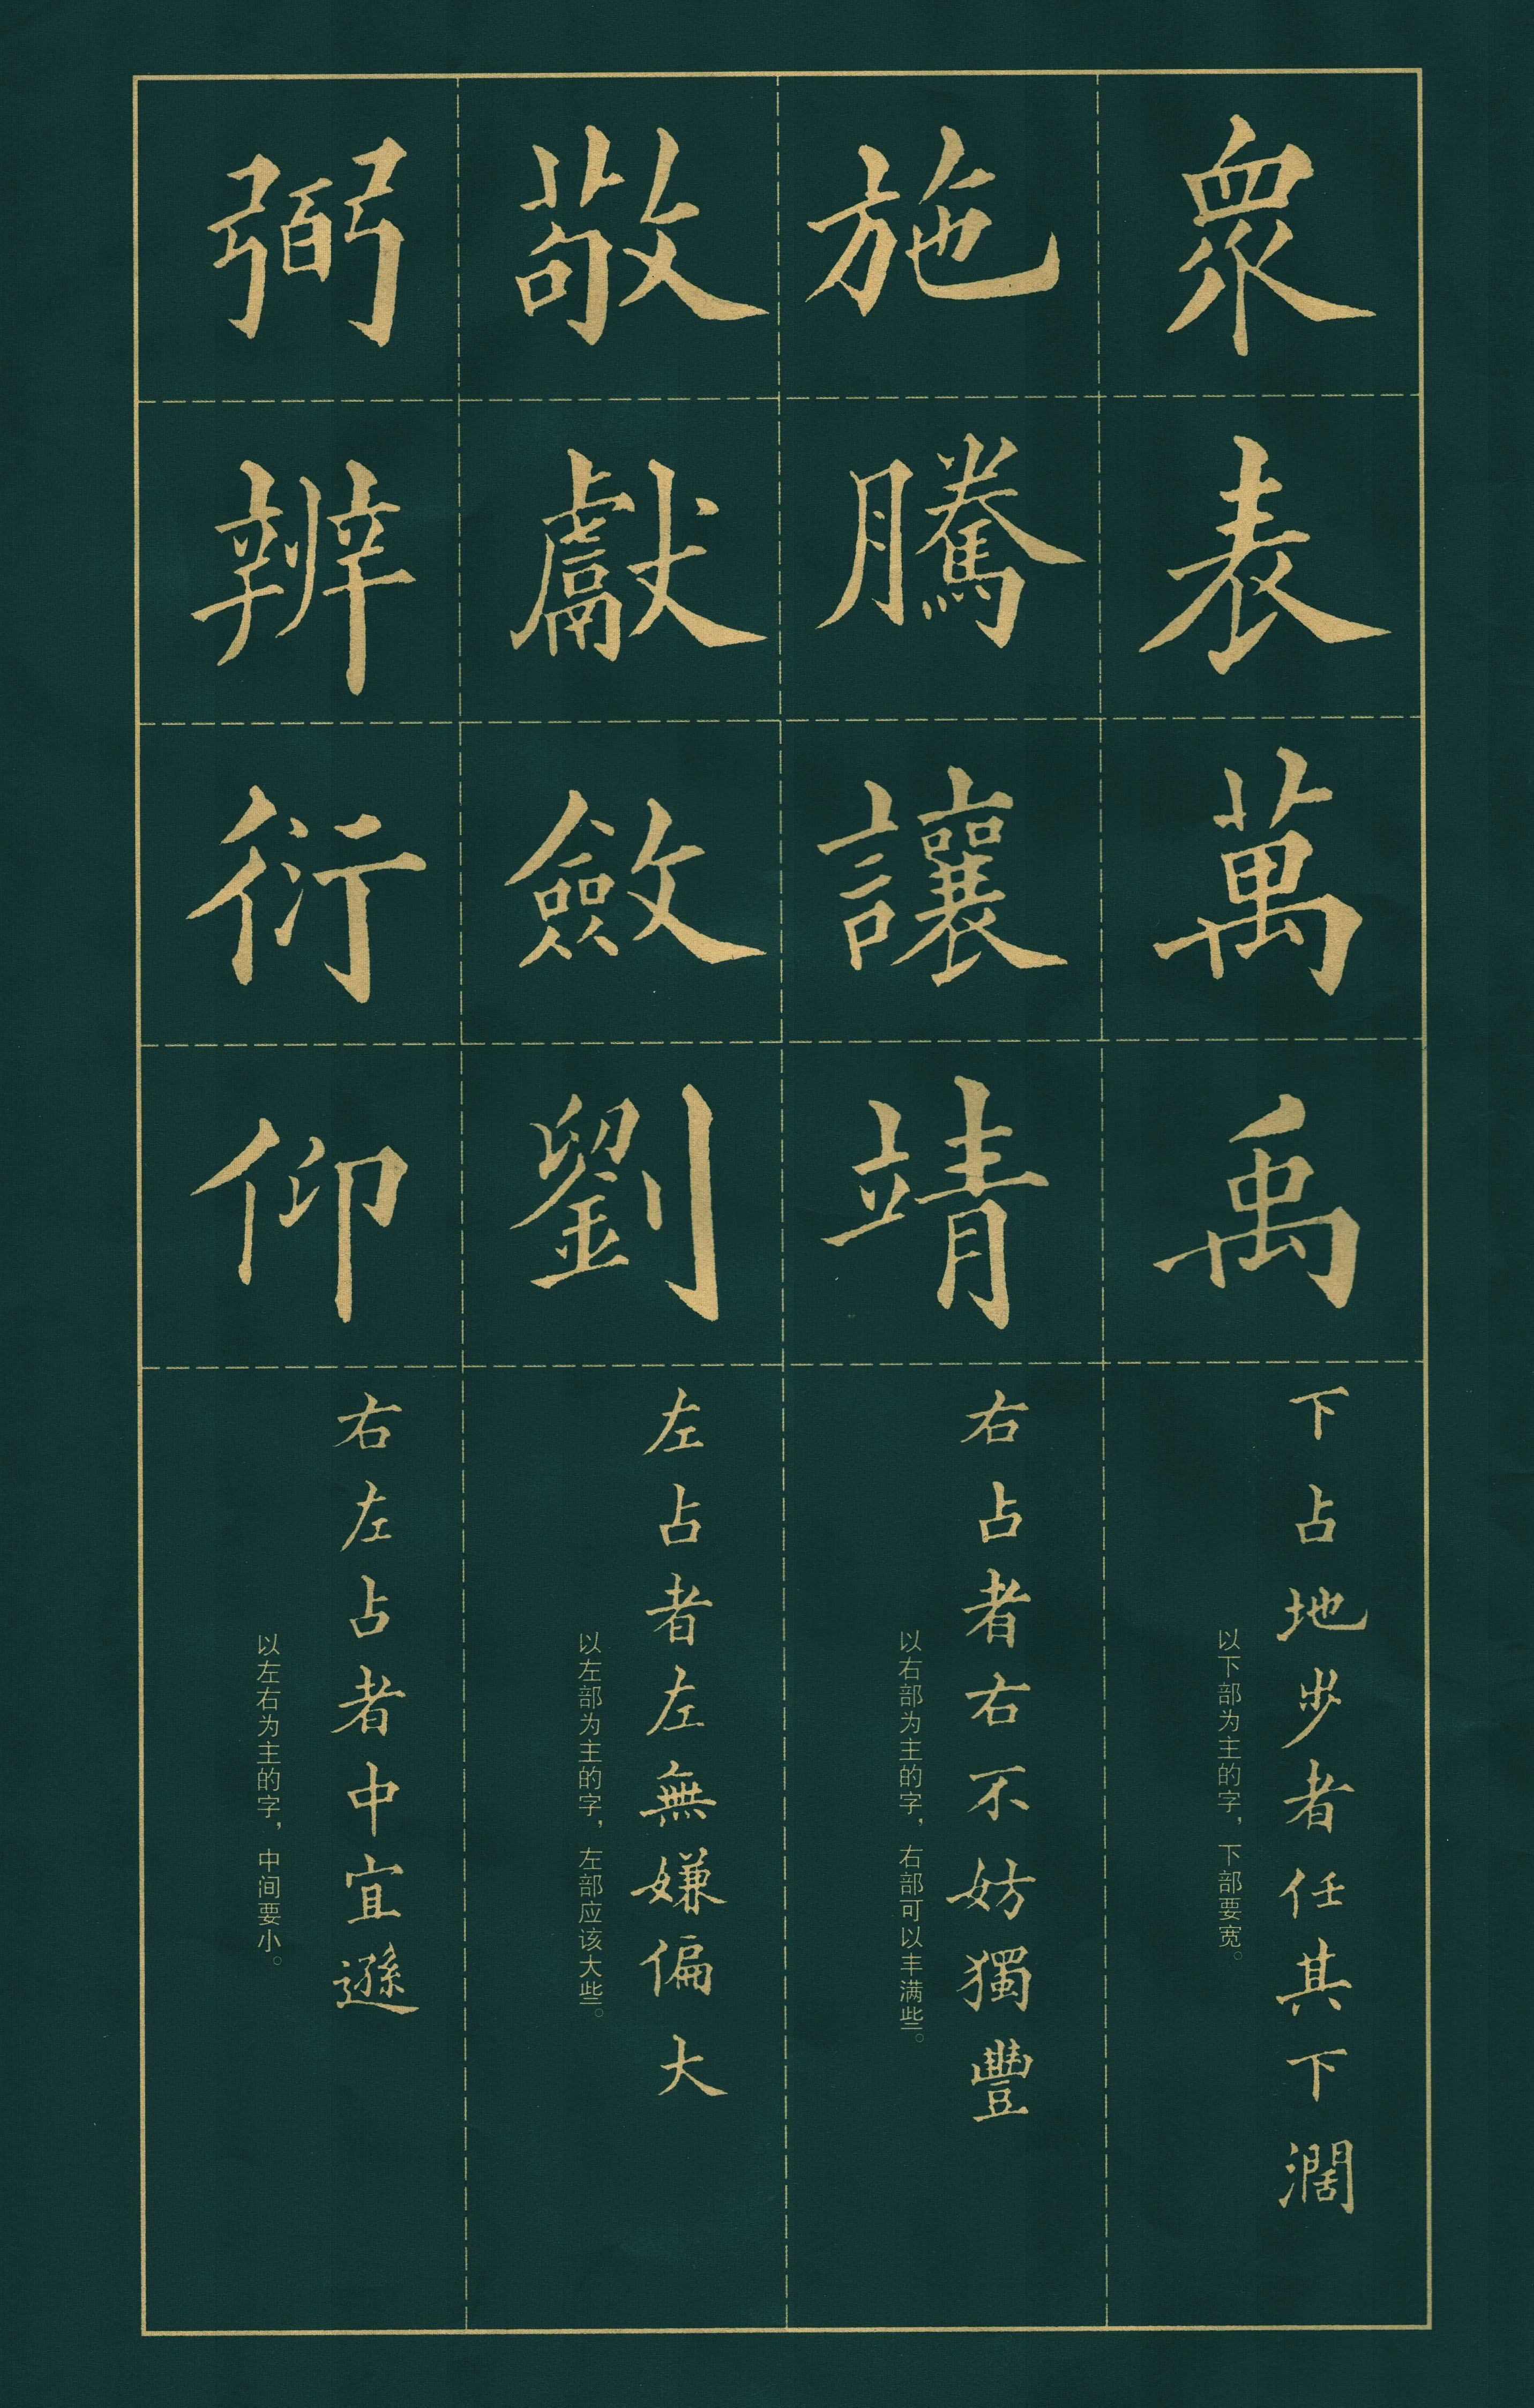 眾表萬禹
下占地步者任其下濶
以下部为主的字，下部要宽。
施騰讓靖
右占者右不妨獨豐
以右部为主的字，右部可以丰满些。
敬獻斂劉
左占者左無嫌偏大
以左部为主的字，左部应该大些。
弼辨衍仰
右左占者中宜遜
以左右为主的字，中间要小。